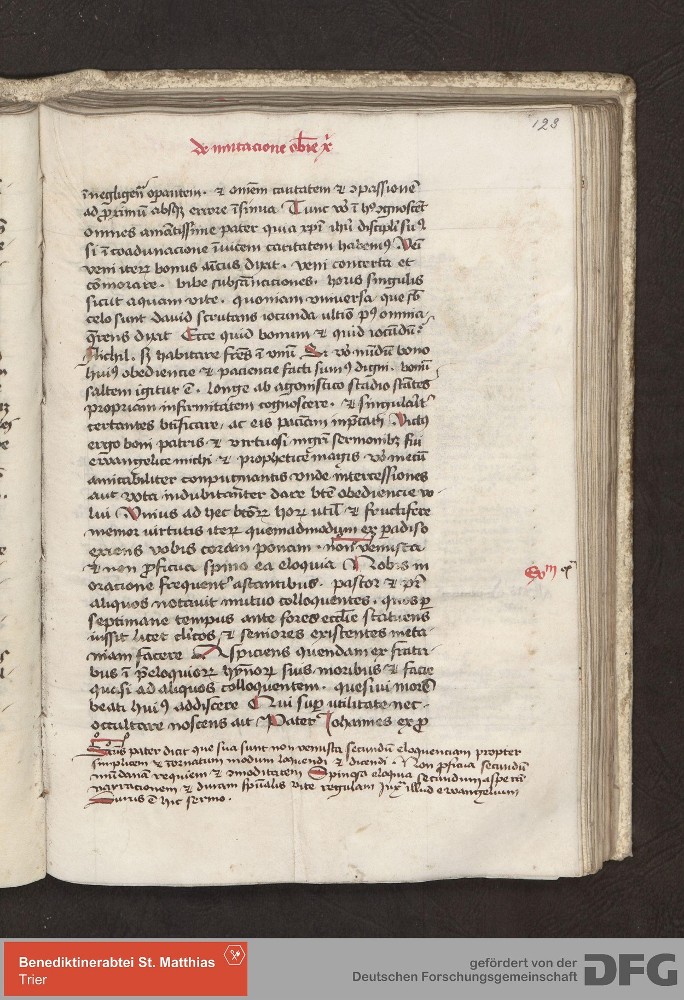 123
de imitacione obie xͥ
ī negligenᷓ opantem · ⁊ omēm caritatem ⁊ ꝯpassionē
ad ꝓximū absqꝫ errore īsinua Tunc vo᷎ ī hͦ ꝯgnoscēt
omnes amātissime pater quia xp̄i ihū discipli sumꝰ
si ī coadunacione īuicem caritatem habemꝰ Veni
veni iterꝝ bonus amicus dixit · veni concerta et
cōmorare · bibe subsānaciones · horis singulis
sicut aquam vite · quoniam vniuersa que sb̄
celo sunt dauid scrutans iocunda vltīo pꝰ omnia
q̄rens dixit Ecce quid bonum ⁊ quid iocūdū
Nichil · sꝫ habitare frēs ī vnū Si vo᷎ nūdū bono
huiꝰ obediencie ⁊ paciencie facti sumꝰ digni · bonū
saltem igitur ē · longe ab agonistico stadio stātes
propriam infirmitatem cognoscere · ⁊ singularit᷎
certantes btīficare, ac eis paciam īp̄cari Victꝰ
ergo boni patris ⁊ virtuosi mgrī sermonibꝫ sui
ewangelice michi ⁊ prophetice magis vo᷎ mecū
amicabiliter conpugnantis vnde intercessiones
aut vota indubitāter dare btē obediencie vo
lui Vnius ad hec btōꝝ horꝝ vtil᷎ ⁊ fructifere
memor virtutis iterꝝ quemadmodum ex padiso
exiens vobis coram ponam · non venusta
⁊ non ꝓficua spino ea eloquia Nobis in
oracione frequent᷎ astantibus · pastor ⁊ pr̄
aliquos notauit mutuo colloquentes · quos ꝑ
septimane tempus ante fores ecclīe statuens
iussit licet clicos ⁊ seniores existentes meta
niam facere Aspiciens quendam ex frātri
bus ī p̄eloquiorꝝ hȳnorꝝ suis moribus ⁊ facie
quasi ad aliquos colloquentem · quesiui morē
beati huiꝰ addiscere Qui suꝑ vtilitate nec
occultare noscens ait Pater Iohannes ex ꝓ
Sctūs pater dicit que sua sunt non venusta secundū eloquenciam propter
simplicem ⁊ tornatum modum loquendi ⁊ dicendi · Non ꝓficua secundū
mūdanā requiem ⁊ ꝯmoditatem Spinea eloquia secundum aspera
narracionem ⁊ duram spūalis vite regulam Iuxᷓ illud ewangelium
Durus ē hic sermo ·
Benediktinerabtei St. Matthias
Trier
gefördert von der
Deutschen Forschungsgemeinschaft
DFG